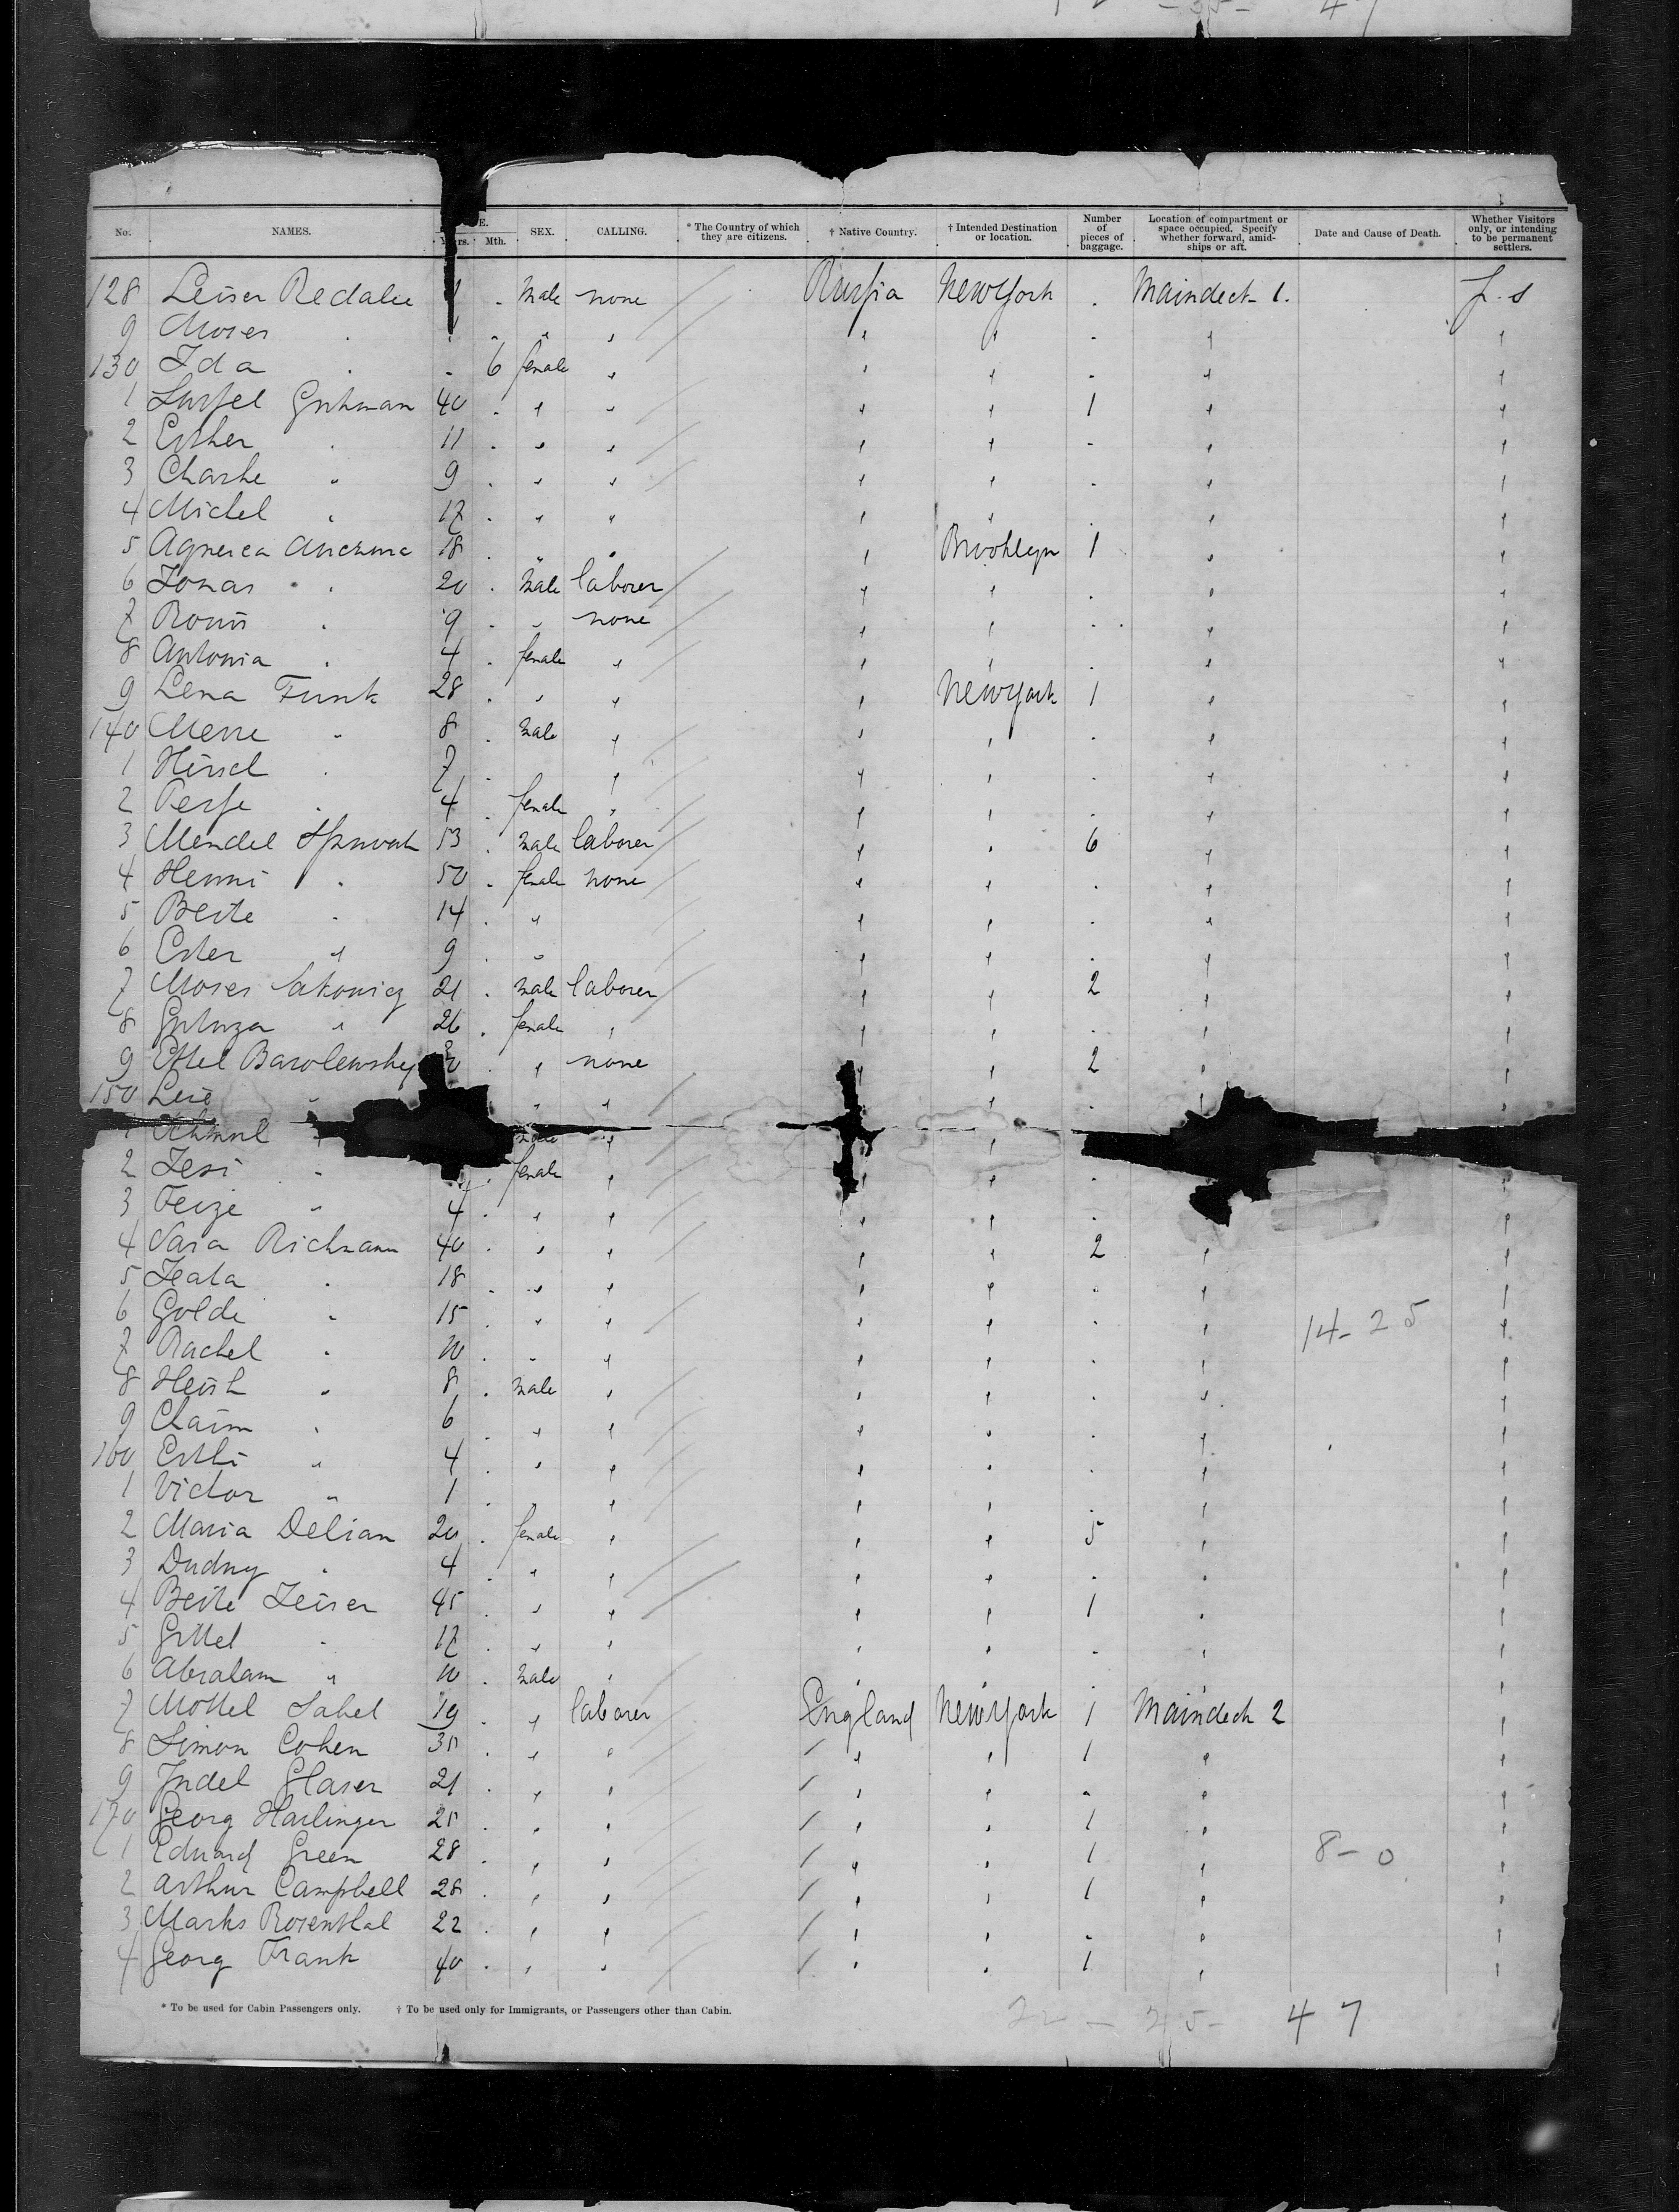 No. NAMES. Yrs. Mth. SEX. CALLING. * The Country of which they are citizens. † Native Country. † Intended Destination or location. Number of pieces of baggage. Location of compartment or space occupied. Specify whether forward, amidships or aft. Date and Cause of Death. Whether Visitors only, or intending to be permanent settlers.
128 Leiser Male none Russia New York . Maindeck 1. p. s
9 Moses " . " " " " . " "
130 Ida . . 6 female " " " . " "
1 40 . " " " " 1 " "
2 Esther . 11 . " " " " . " "
3 Charke " 9 . " " " " . " "
4 Michel " 17 . " " " " . " "
5 18 . " " " Brooklyn 1 " "
6 Jonas . 20 . Male laborer " " . " "
7 . 9 . " none " " . " "
8 Antonia . 4 . female " " " . " "
9 Lena Funk 28 . " " " New York 1 " "
140 " 8 . Male " " " . " "
1 Hirsch . 7 . " " " . " "
2 . 4 . female " " " . " "
3 Mendel 53 . Male laborer " " 6 " "
4 Henni . 50 . female none " " . " "
5 Beile . 14 . " " " . " "
6 Ester " 9 . " " " . " "
7 Moses 21 . Male laborer " " 2 " "
8 " 26 . female " " " . " "
9 Ettel Barolewsky . " none " " 2 " "
150 Leie " " " " . " "
" male " "
2 . . female " " .  "
3 Feige " 4 . " " " " . "
4 Sara Richmann 40 . " " " " 2 " "
5 . 18 . " " " " " " "
6 Golde " 15 . " " " " . " 14-25 "
7 Rachel . 10 . " " " " . " "
8 Hersh " 8 . Male " " " . " "
9 Chaim . 6 . " " " " . " "
160 " 4 . " " " " . " "
1 Victor " 1 . " " " " . " "
2 Maria Delian . female " " " 5 " "
3 . 4 . " " " " . " "
4 Beile Zeiser 45 . " " " " 1 " "
5 Gittel . 17 . " " " " . " "
6 Abraham " 10 . Male " " " . " "
7 Mottel Sabel 19 . " laborer England New York 1 Maindeck 2 "
8 Simon Cohen . " " " " 1 " "
9 Judel Glaser 21 . " " " " . " "
170 Georg Harlinger 25 . " " " " 1 " "
1 Eduard Green 28 . " " " " 1 " 8-0 "
2 Arthur Campbell 28 . " " " " 1 " "
3 Marks Rosenthal 22 " " " " . " "
4 Georg Frank 40 . " " " " 1 " "
* To be used for Cabin Passengers only. † To be used only for Immigrants, or Passengers other than Cabin.
22 - 25- 47